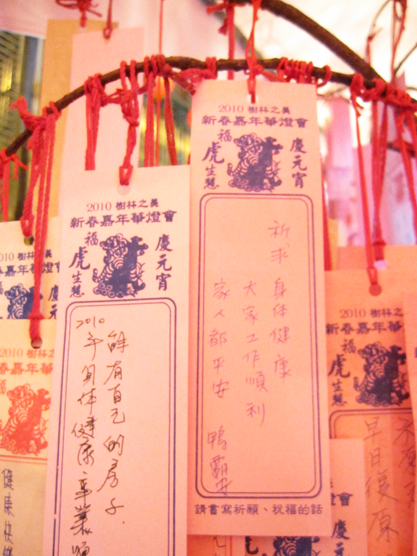 2010 樹林之美
新春嘉年華燈會
福虎生憨
慶元宵
祈求
身体健康
大家工作順利
家人都平安
鴨霸
請書寫祈願、祝福的話
2010 樹林之美
新春嘉年華燈會
福虎生憨
慶元宵
能有自己的房子.
2010年身体健康事業順
2010 樹
新春嘉年華
福虎生憨
健康快
2010 樹林
嘉年華燈
虎生憨
早日復原